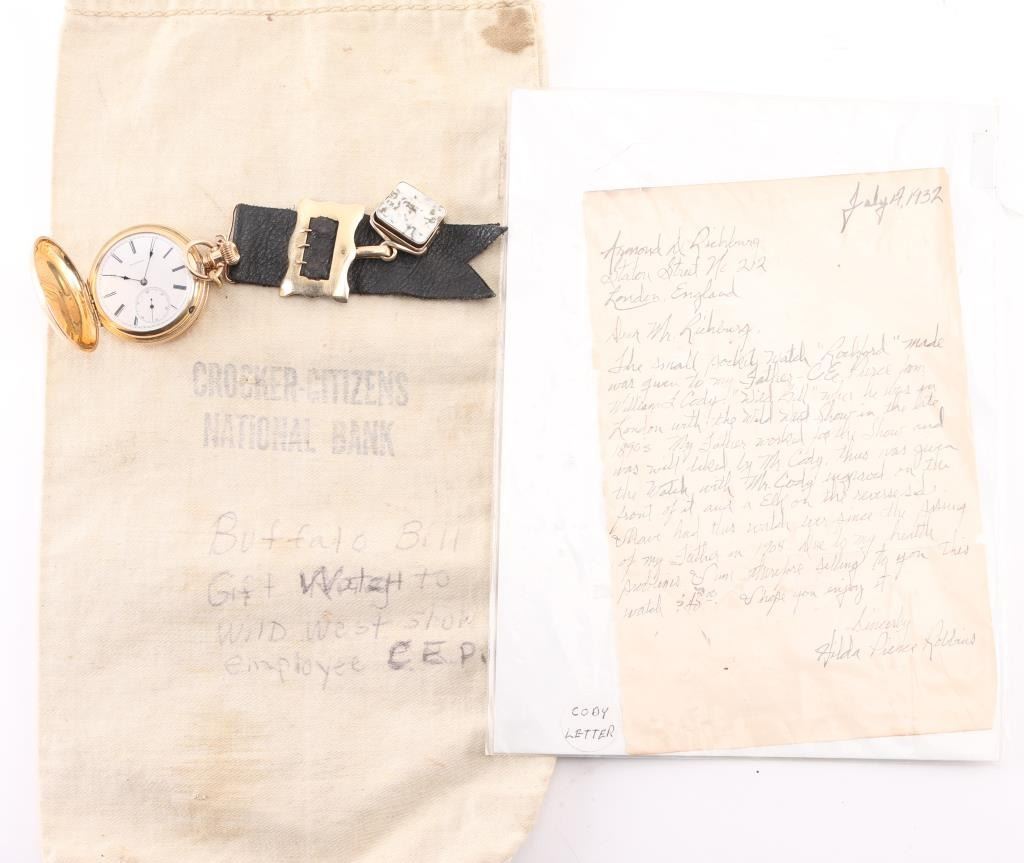 CROCKER-CITIZENS
NATIONAL BANK
Buffalo Bill
Gift Watch to
Wild West Show
employee C.E.P.
July 19, 1932
Armond D. Richburg
Street No 212
London, England
Dear Mr. Richburg,
The small pocket watch "Rockford" made
was given to my Father - C.E. Pierce from
William Cody "Wild Bill" when he was in
London with the Wild West Show in the late
1890s. My Father worked for the Show and
was well liked by Mr Cody, thus was given
the Watch, with Mr. Cody engraved on the
front of it and a Elk on the reverse.
I have had this watch ever since the passing
of my Father in 1908 due to my health
problems I am therefore selling to you this
watch I hope you enjoy it
Sincerely
Hilda Pierce Robbins
CODY
LETTER